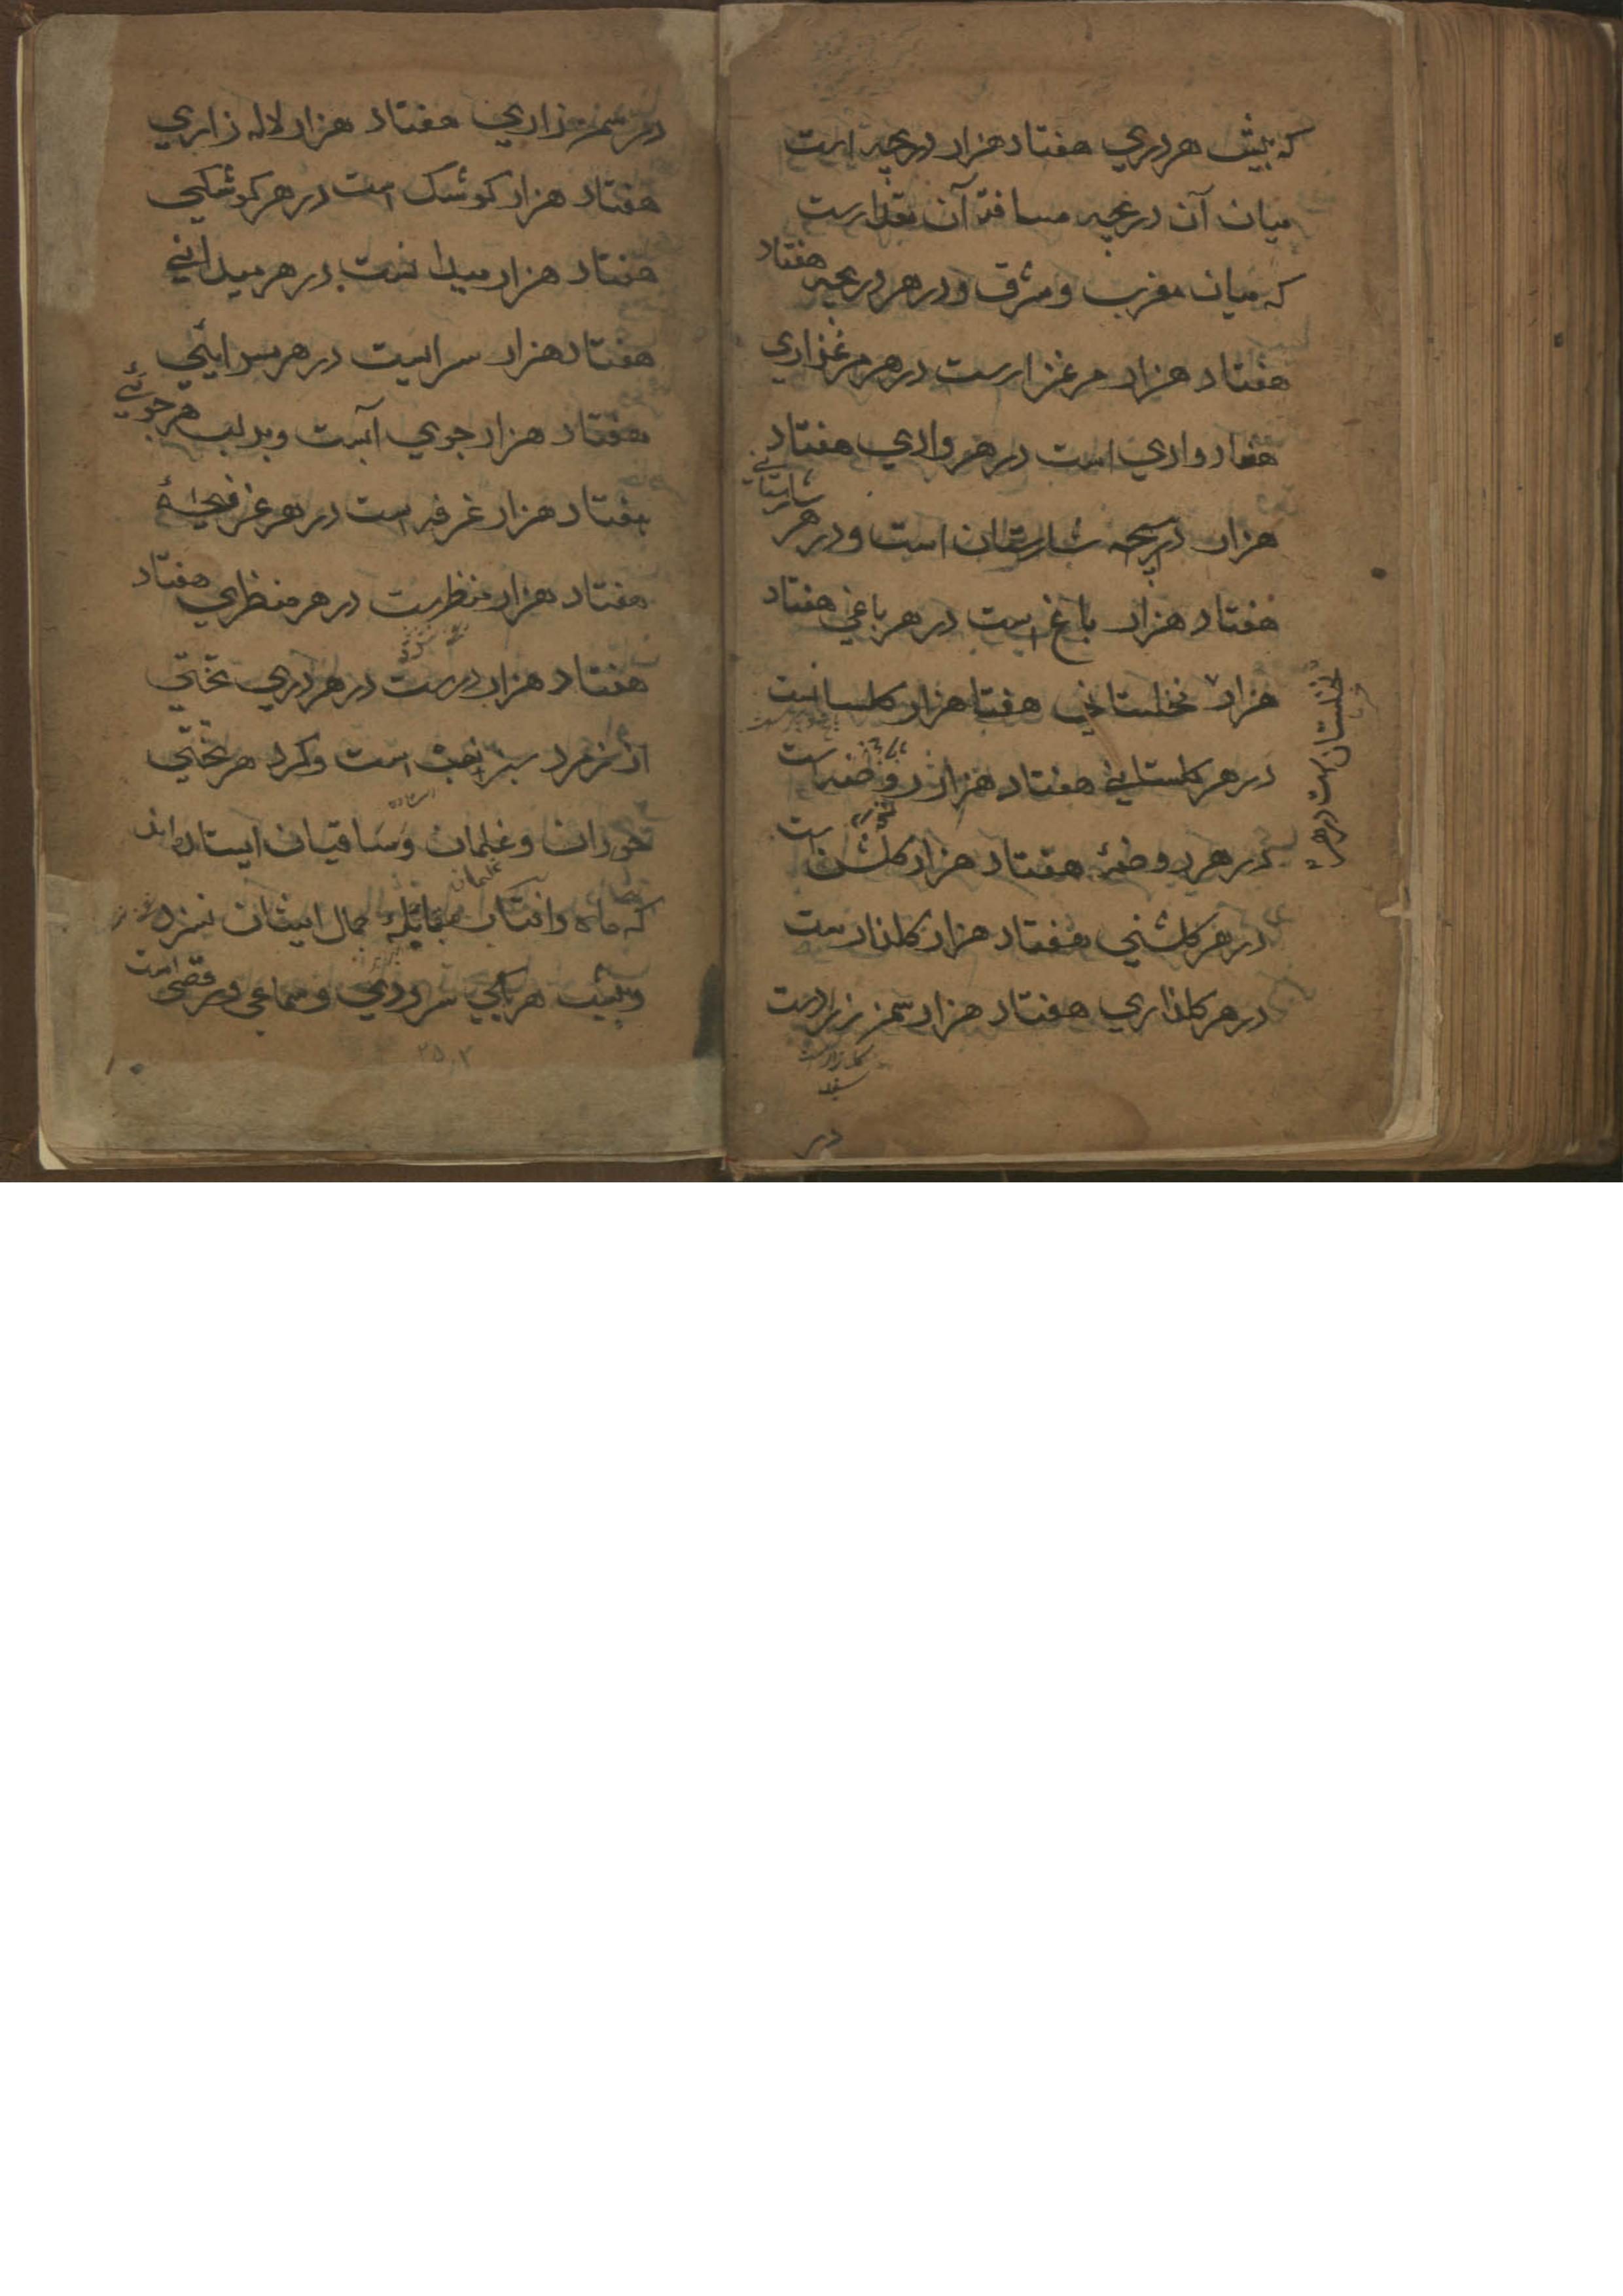 که پیش هر دری هفتاد هزار دریچه است
میان آن دریچه مسافة آن مقدارست
که میان مغرب و مشرق و در هر دریچه هفتاد
هفتاد هزار مرغزارست در هر مرغزاری
هفتاد وادی است در هر وادی هفتاد
هزار دریچه شارستان است و در هر شارستانی
هفتاد هزار باغ است در هر باغی هفتاد
هزار نخلستانی هفتا هزار کلستانست
نخلستان است در هر
در هر کلستانی هفتاد هزار روضه است
در هر روضهٔ هفتاد هزار کلشن است
در هر کلشنی هفتاد هزار کلذارست
در هر کلذاری هفتاد هزار سمن زارست
در
در سمن زاری هفتاد هزار لاله زاری
هفتاد هزار کوشک است در هر کوشکی
هفتاد هزار میدانست در هر میدانی
هفتاد هزار سراییت در هر سرایئی
هفتاد هزار جوی آبست و بر لب هر جوئی
هفتاد هزار غرفه است در هر غرفهٔ
هفتاد هزار منظرست در هر منظری هفتاد
هفتاد هزار درست در هر دری تختی
از زمرد سبز است و کرد هر تختی
حوران و غلمان و ساقیان ایستاده اند
غلمان
که ماه وافتاب بمقابله جمال ایشان نیزد
و پیش هر یکی سرودی و سماعی و رقصی است